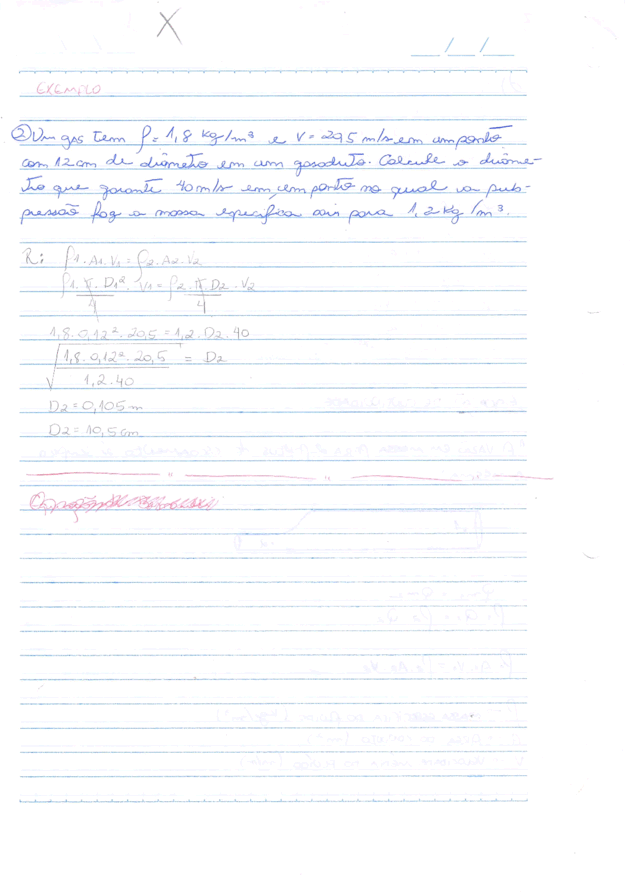 EXEMPLO
② Um gas tem ρ = 1,8 Kg/m³ e V = 20,5 m/s em um ponto
com 12 cm de diâmetro em um gasoduto. Calcule o diâme-
tro que garante 40 m/s em um ponto no qual a sub-
pressão faz a massa específica cair para 1,2 Kg/m³.
R: ρ1 . A1 . V1 = ρ2 . A2 . V2
ρ1 . π . D1² . V1 = ρ2 . π D2 . V2
4 4
1,8 . 0,12² . 20,5 = 1,2 . D2 . 40
√1,8 . 0,12² . 20,5 = D2
1,2 . 40
D2 = 0,105 m
D2 = 10,5 cm